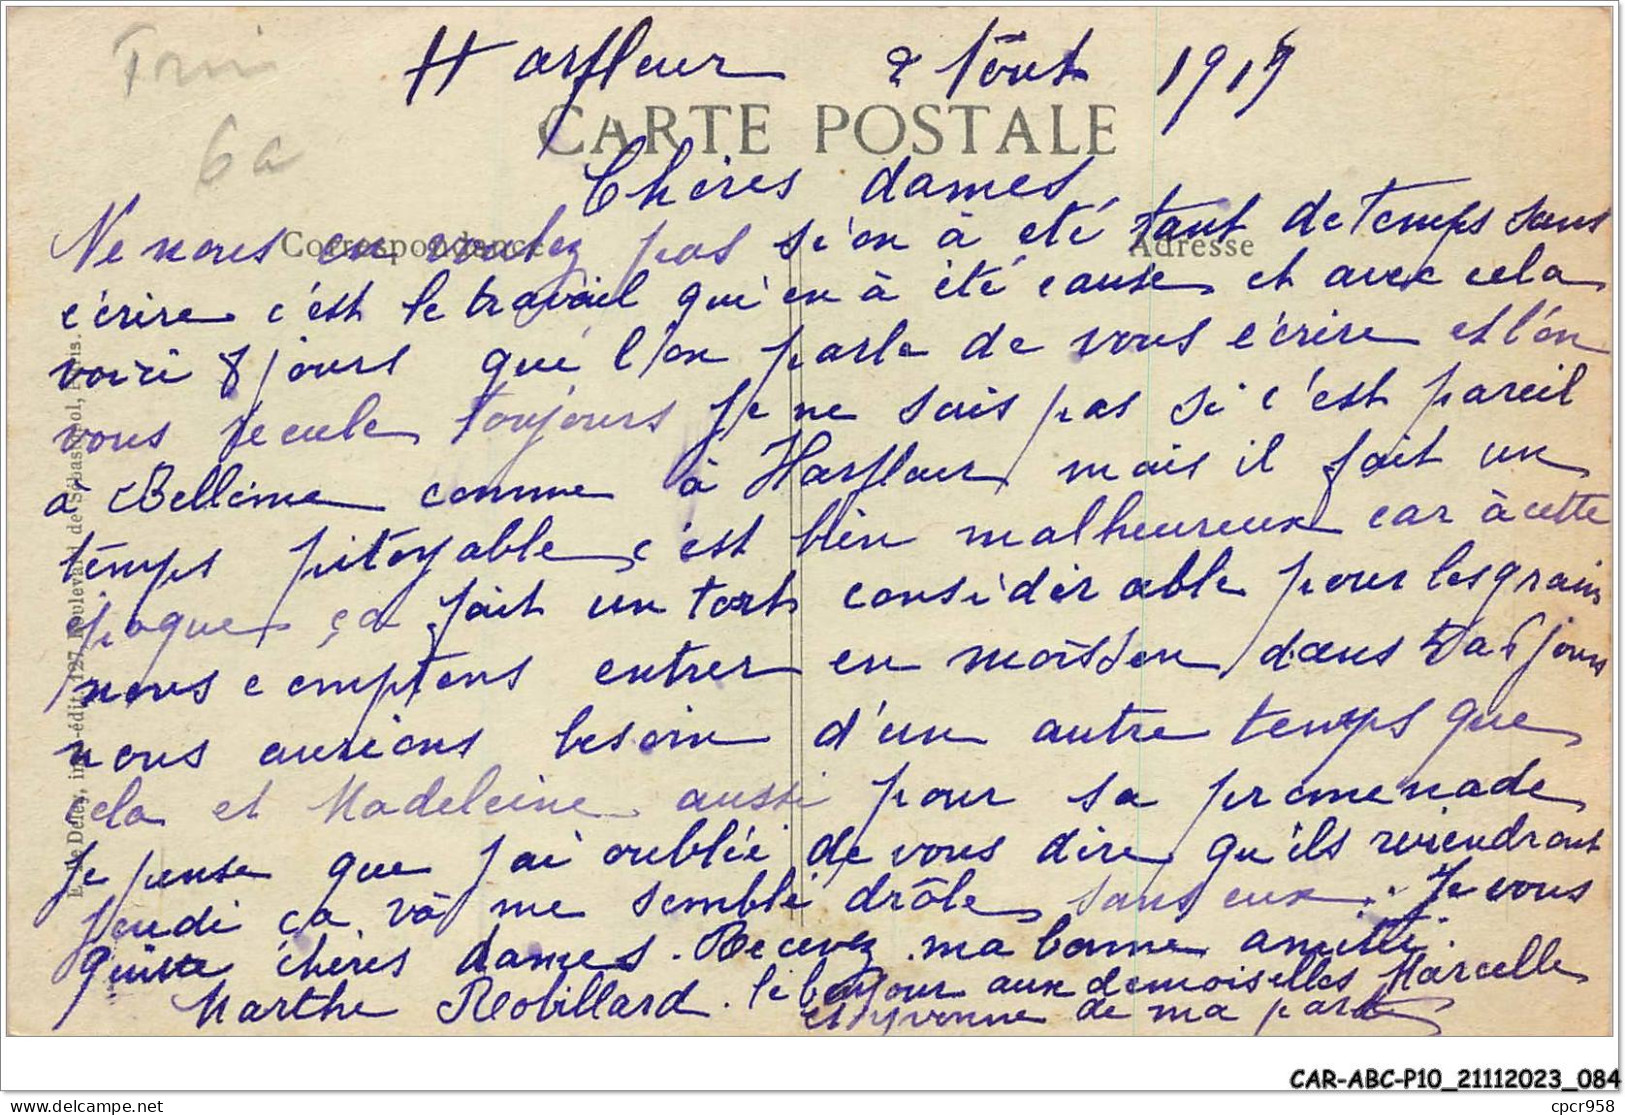 Frris
6a
Harfleur 2 Août 1917
CARTE POSTALE
Chéres dames
Correspondance
Adresse
Ne nous en voulez pas si'on à été tant de temps sans
écrire c'est le travail qui en à été cause et avec cela
voici 8 jours que l'on parle de vous écrire et l'on
vous recule toujours Je ne sais pas si c'est pareil
à Belléme comme à Harfleur mais il fait un
temps pitoyable c'est bien malheureux car à cette
époque ça fait un tort considérable pour les grains
nous comptons entrer en moisson dans 5 a 6 jours
nous aurions besoin d'un autre temps que
cela et Madeleine aussi pour sa promenade
Je pense que j'ai oubliée de vous dire qu'ils reviendront
Jeudi ça và me semblé drôle sans eux. Je vous
quitte chères dames. Recevez ma bonne amitié.
Marthe Robillard. le bonjour aux demoiselles Marcelle
et yvonne de ma part
E. Le Deley, imp.-édit., 127, Boulevard de Sébastopol, Paris.
CAR-ABC-P10_21112023_084
delcampe.net
cpcr958